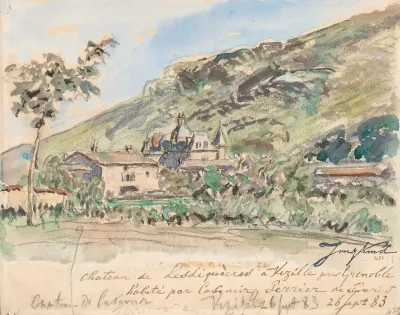 Jongkind
Chateau de Lesdiguières à Vizille près Grenoble
habité par Casimir Perrier de
Chateau de Vizille 26 sept 83 26 sept 83